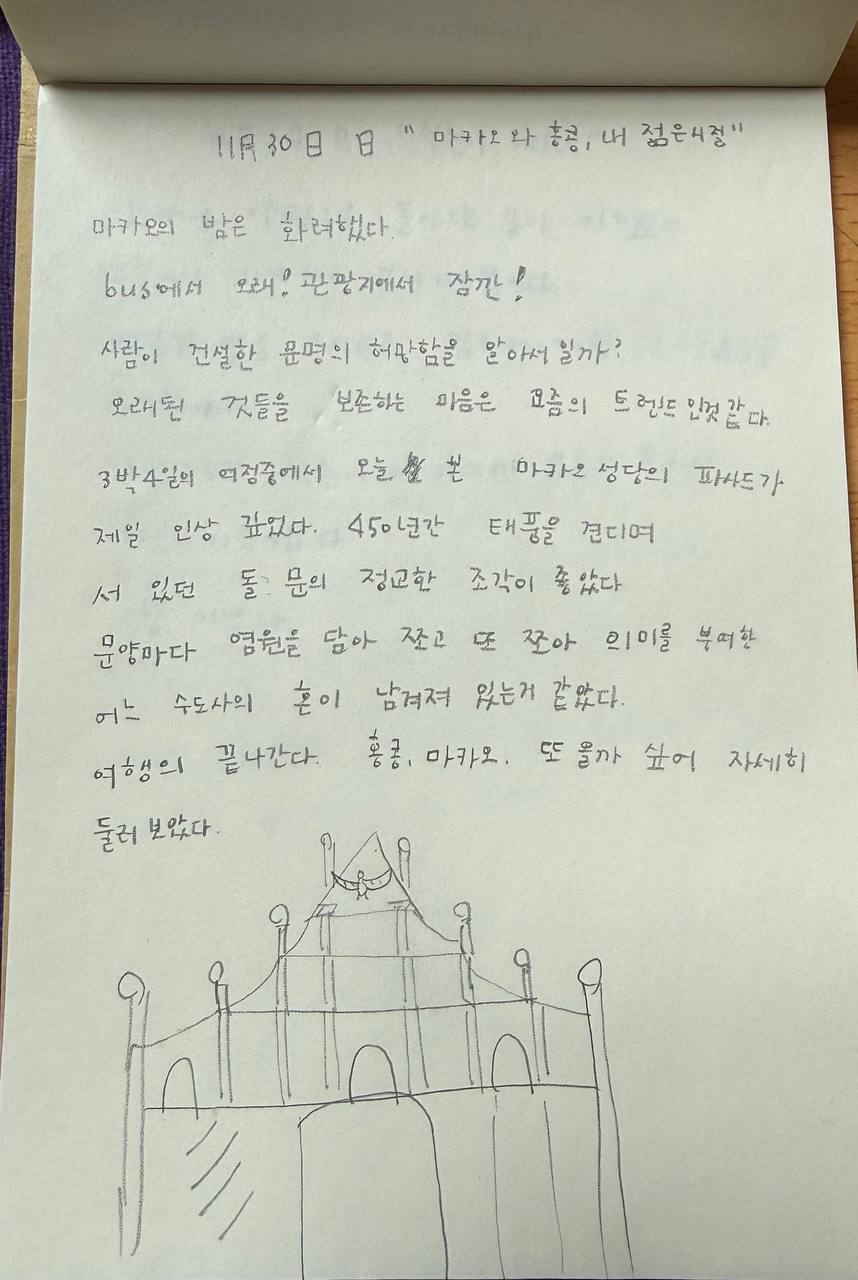 11月 30日 日 "마카오와 홍콩, 내 젊은시절"
마카오의 밤은 화려했다.
bus에서 오래! 관광지에서 잠깐!
사람이 건설한 문명의 허망함을 알아서 일까?
오래된 것들을 보존하는 마음은 요즘의 트렌드인것 같다.
3박4일의 여정중에서 오늘 본 마카오 성당의 파사드가
제일 인상 깊었다. 450년간 태풍을 견디며
서 있던 돌 문의 정교한 조각이 좋았다
문양마다 염원을 담아 쪼고 또 쪼아 의미를 부여한
어느 수도사의 혼이 남겨져 있는거 같았다.
여행의 끝나간다. 홍콩, 마카오. 또 올까 싶어 자세히
둘러 보았다.